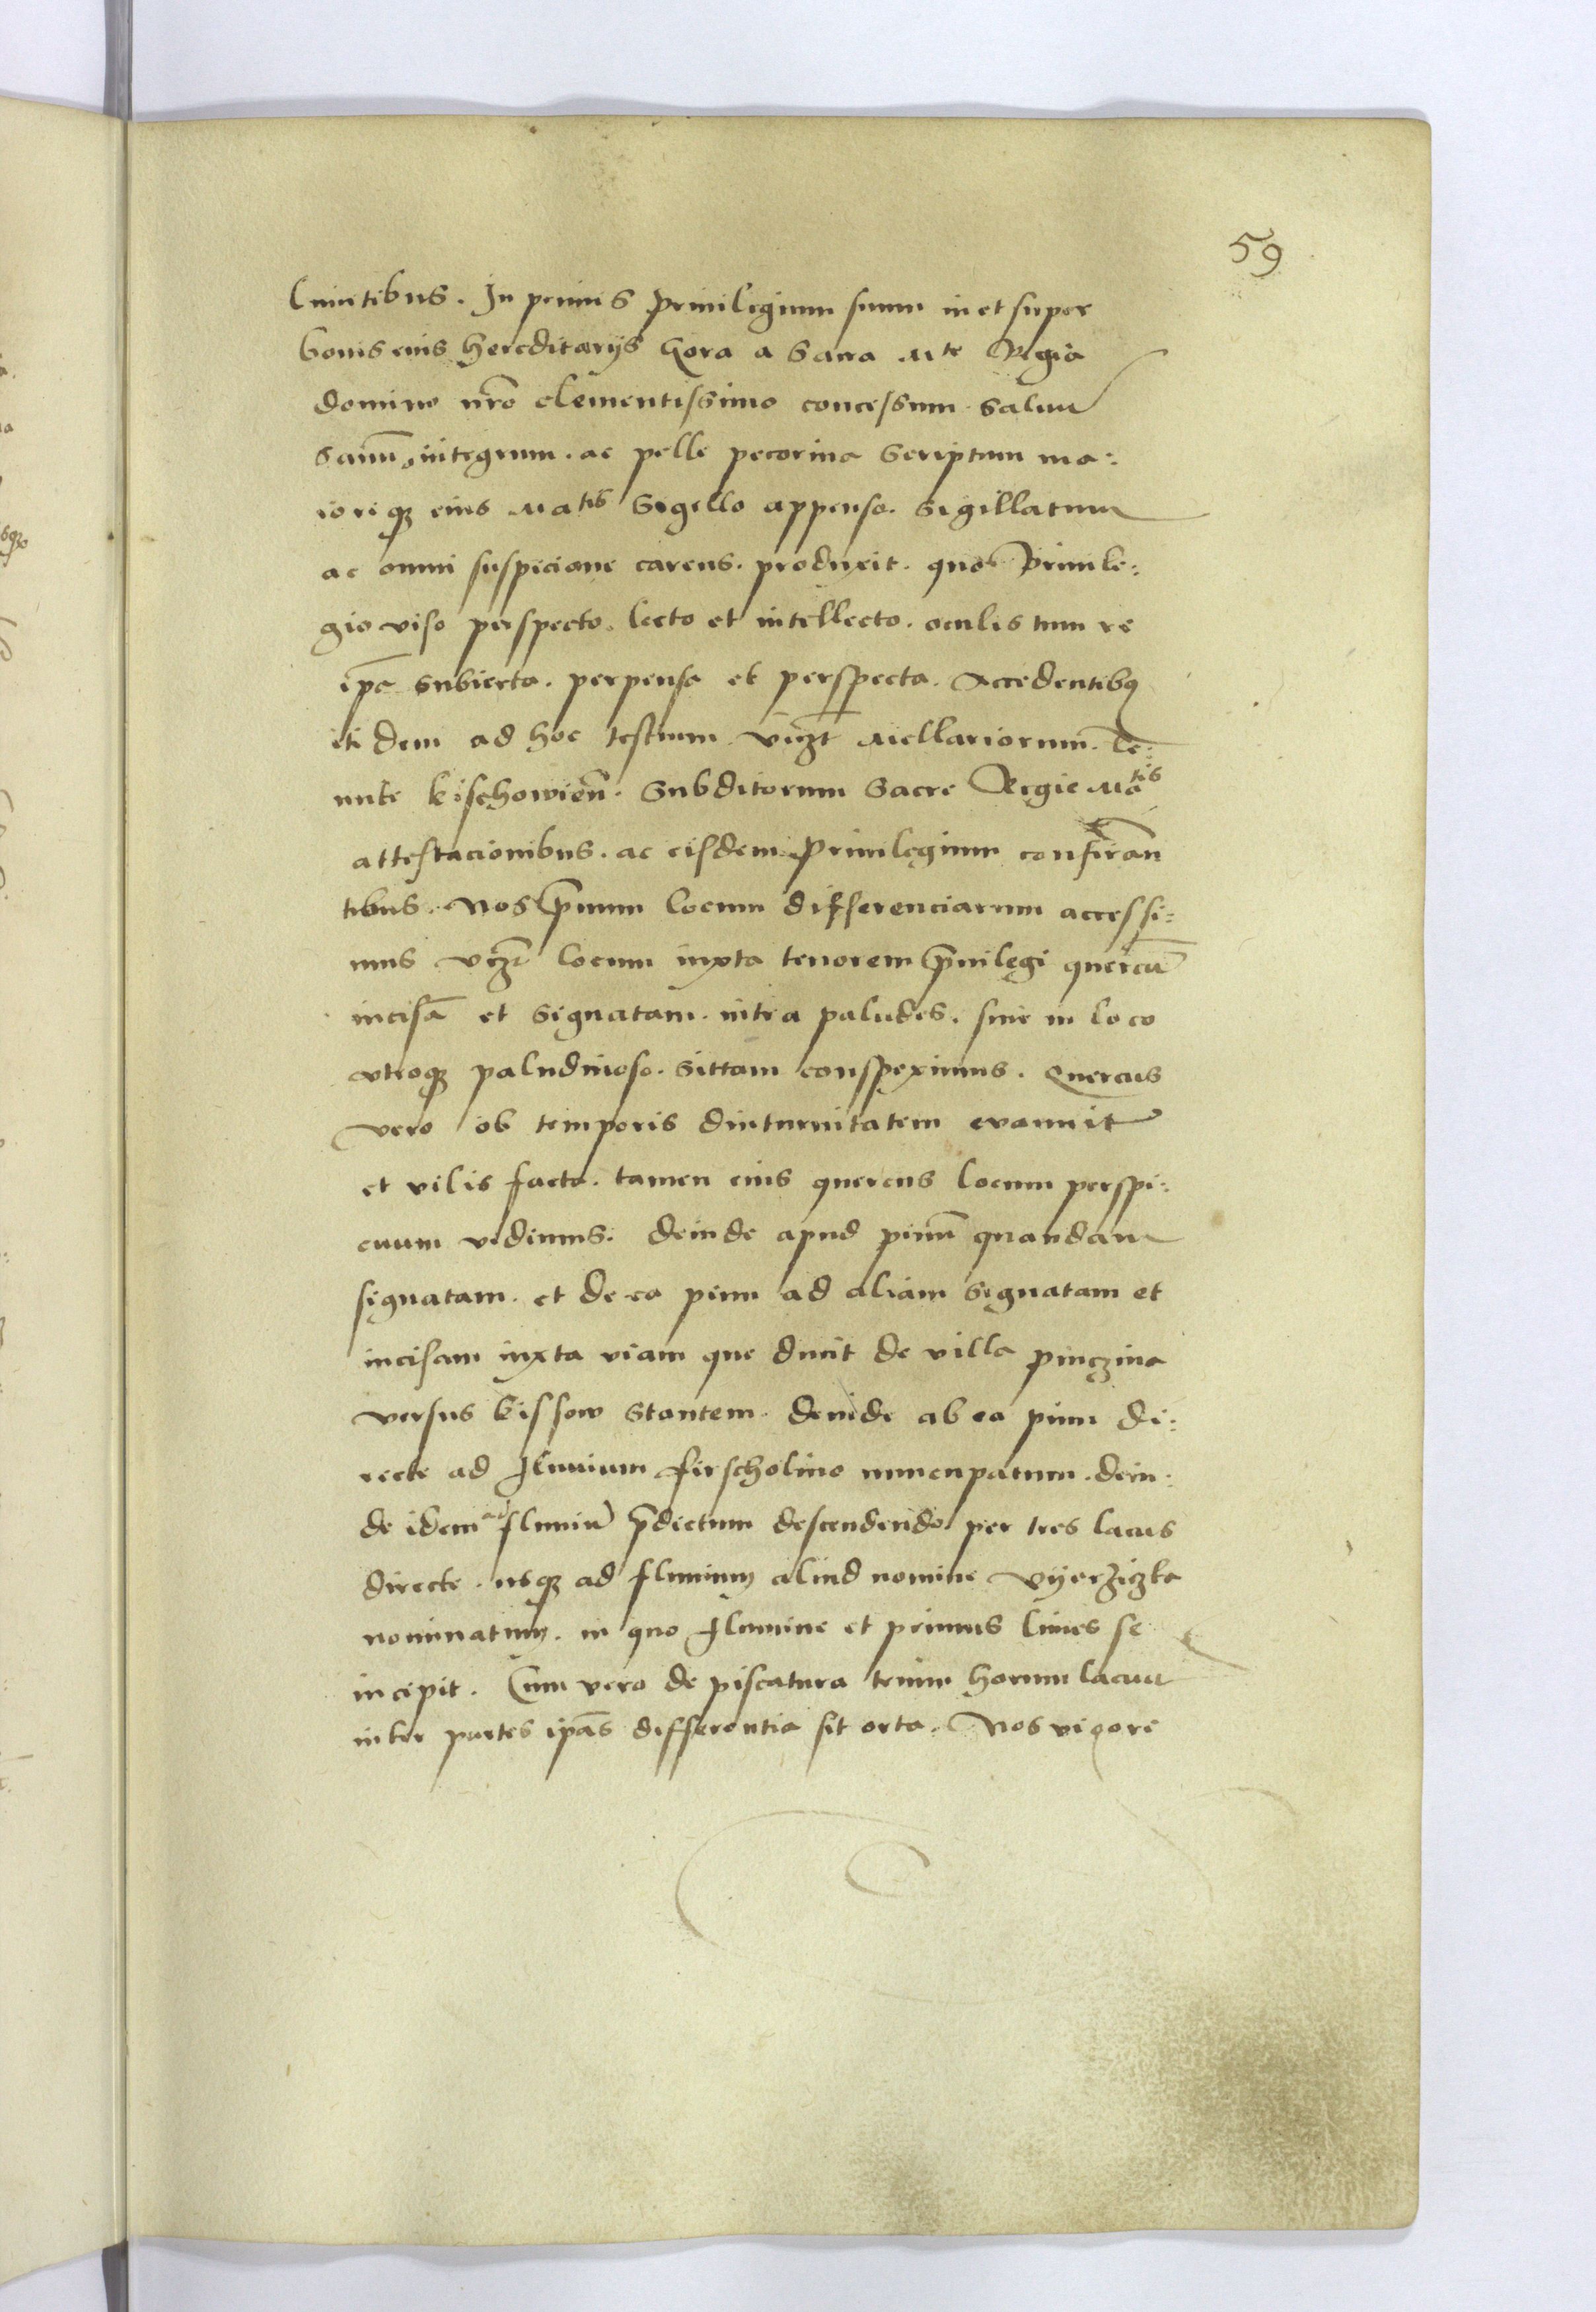 59
limitibus. In primis Priuilegium suum in et super
bonis eius hereditarijs Gora a Sacra Mte Regia
domino nro clementissimo concessum. saluu
sanu integrum. ac pelle pecorina scriptum ma:
iorique eius Matis Sigello appenso. sigillatum
ac omni suspicione carens. produxit. quo Priuile:
gio viso perspecto. lecto et intellecto. oculis tum re
ipa subiecta. perpensa et perspecta. Accedentibus
iti dem ad hoc testium vizt Mellariorum. Te:
nute kischowien. subditorum Sacre Regie Matis
attestacionibus. ac eisdem Priuilegium confirman
tibus. Nos Primum locum differenciarum accessi:
mus vizt locum iuxta tenorem priuilegi quercu
incisa et signatam. intra paludes. siue in loco
vtroque paludinoso. sittam conspeximus. Quercus
vero ob temporis diuturnitatem evanuit
et vilis facta. tamen eius quercus locum perspi:
cuum vidimus. deinde apud pinu quandam
signatam. et de ea pinu ad aliam signatam et
incisam iuxta viam que ducit de villa pinczina
versus kissow stantem. deinde ab ea pinu di:
recte ad Fluuium firscholino nuncupatum. dein:
de idem ad fluuiu pdictum descendendo per tres lacus
directe. usque ad fluuium aliud nomine vyerziczka
nominatum. in quo Flumine et primus limes se
incipit. Cum vero de piscatura trium horum lacuu
inter partes ipas differentia sit orta. Nos vigore